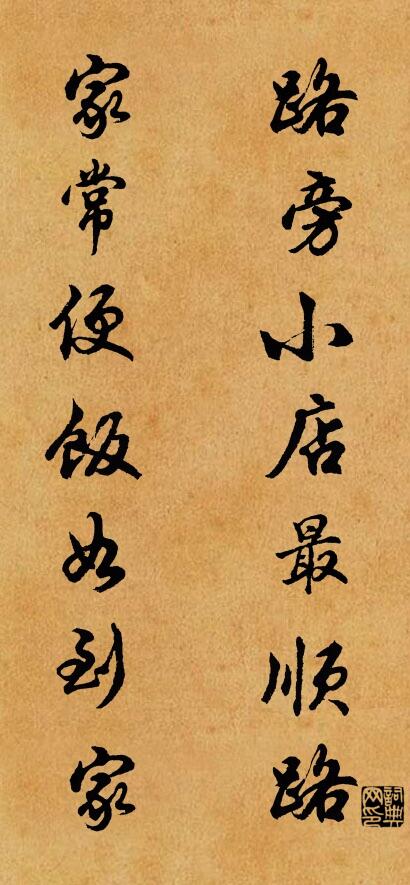 路旁小店最顺路
家常便饭如到家
词典网印